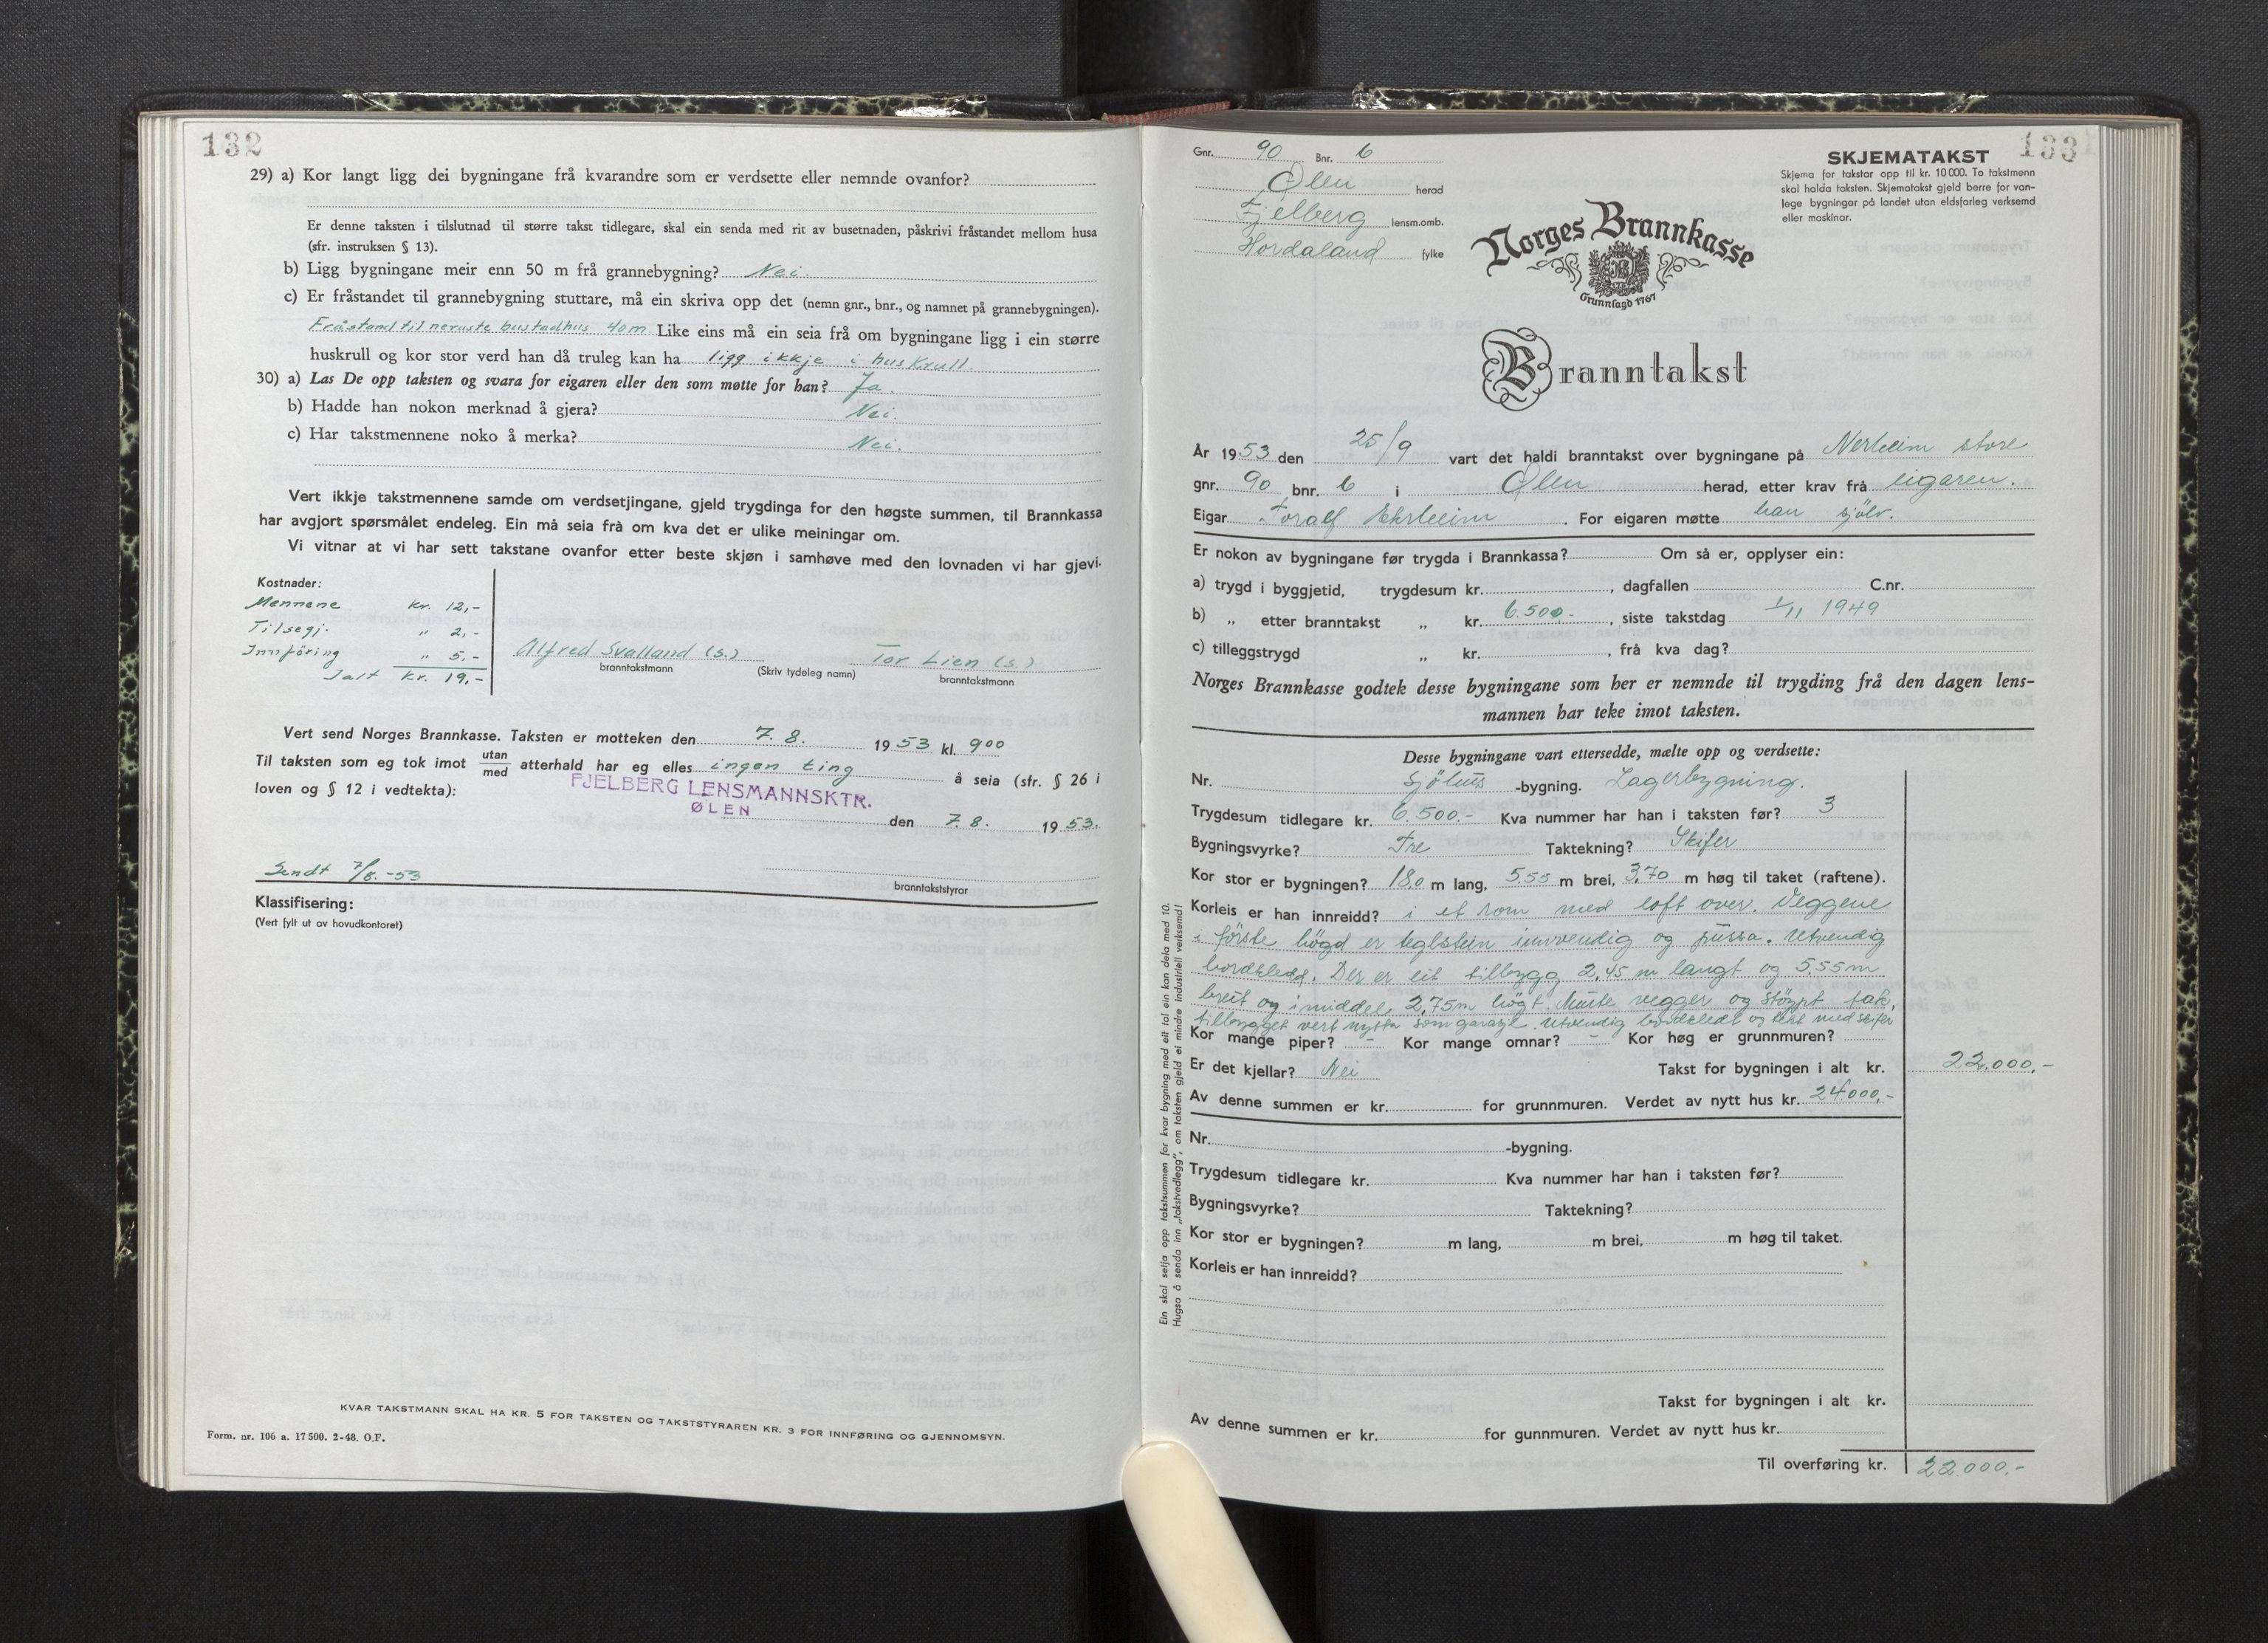 132
29) a) Kor langt ligg dei bygningane frå kvarandre som er verdsette eller nemnde ovanfor?
Er denne taksten i tilslutnad til større takst tidlegare, skal ein senda med rit av busetnaden, påskrivi fråstandet mellom husa
(sfr. instruksen § 13).
b) Ligg bygningane meir enn 50 m frå grannebygning? Nei.
c) Er fråstandet til grannebygning stuttare, må ein skriva opp det (nemn gnr., bnr., og namnet på grannebygningen).
Fråstand til neruste bustadhus 40m Like eins må ein seia frå om bygningane ligg i ein større
huskrull og kor stor verd han då truleg kan ha ligg ikkje i huskrull.
30) a) Las De opp taksten og svara for eigaren eller den som møtte for han? Ja.
b) Hadde han nokon merknad å gjera? Nei.
c) Har takstmennene noko å merka? Nei.
Vert ikkje takstmennene samde om verdsetjingane, gjeld trygdinga for den høgste summen, til Brannkassa
har avgjort spørsmålet endeleg. Ein må seia frå om kva det er ulike meiningar om.
Vi vitnar at vi har sett takstane ovanfor etter beste skjøn i samhøve med den lovnaden vi har gjevi.
Kostnader:
Mennene kr. 12,-
Tilsegj. " 2,-
Innföring " 5,-
Ialt kr. 19,-
Alfred Svalland (s.) Tor Lien (s.)
branntakstmann (Skriv tydeleg namn) branntakstmann
Vert send Norges Brannkasse. Taksten er motteken den 7. 8. 1953 kl. 900
Til taksten som eg tok imot utan/med atterhald har eg elles ingen ting å seia (sfr. § 26 i
loven og § 12 i vedtekta):
FJELBERG LENSMANNSKTR.
ØLEN
den 7. 8. 1953.
Sendt 7/8.-53
branntakststyrar
Klassifisering:
(Vert fylt ut av hovudkontoret)
KVAR TAKSTMANN SKAL HA KR. 5 FOR TAKSTEN OG TAKSTSTYRAREN KR. 3 FOR INNFØRING OG GJENNOMSYN.
Form. nr. 106 a. 17500. 2-48. O.F.
133
Gnr. 90 Bnr. 6
Ølen herad
Fjelberg lensm.omb.
Hordaland fylke
SKJEMATAKST
Skjema for takstar opp til kr. 10 000. To takstmenn
skal halda taksten. Skjematakst gjeld berre for van-
lege bygningar på landet utan eldsfarleg verksemd
eller maskinar.
Norges Brannkasse
Grunnlagd 1767
Branntakst
År 1953 den 25/9 vart det haldi branntakst over bygningane på Nerheim store
gnr. 90 bnr. 6 i Ølen herad, etter krav frå eigaren.
Eigar Toralf Nerheim. For eigaren møtte han sjölv.
Er nokon av bygningane før trygda i Brannkassa? Om så er, opplyser ein:
a) trygd i byggjetid, trygdesum kr. , dagfallen C.nr.
b) „ etter branntakst „ kr. 6.500.- , siste takstdag 1/11 1949
c) tilleggstrygd „ kr. , frå kva dag?
Norges Brannkasse godtek desse bygningane som her er nemnde til trygding frå den dagen lens-
mannen har teke imot taksten.
Desse bygningane vart ettersedde, mælte opp og verdsette:
Nr. Sjöhus -bygning. Lagerbygning.
Trygdesum tidlegare kr. 6.500.- Kva nummer har han i taksten før? 3
Bygningsvyrke? Tre Taktekning? Skifer
Kor stor er bygningen? 18.0 m lang, 5.55 m brei, 3,70 m høg til taket (raftene).
Korleis er han innreidd? i et rom med loft over. Veggene
i förste högd er teglstein innvendig og pussa. Utvendig
bordkledd. Der er eit tilbygg 2,45 m langt og 5.55 m
breit og i middel 2,75m högt. Murte vegger og stöypt tak,
tilbygget vert nytta som garasje. Utvendig bordkledt og tekt med skifer
Kor mange piper? - Kor mange omnar? - Kor høg er grunnmuren?
Er det kjellar? Nei Takst for bygningen i alt kr. 22.000,-
Av denne summen er kr. for grunnmuren. Verdet av nytt hus kr. 24000,-
Nr. -bygning.
Trygdesum tidlegare kr. Kva nummer har han i taksten før?
Bygningsvyrke? Taktekning?
Kor stor er bygningen? m lang, m brei, m høg til taket.
Korleis er han innreidd?
Takst for bygningen i alt kr.
Av denne summen er kr. for gunnmuren. Verdet av nytt hus kr.
Til overføring kr. 22.000,-
Ein skal setja opp takstsummen for kvar bygning med eit tal ein kan dela med 10.
Hugsa å senda inn „takstvedlegg", om taksten gjeld ei mindre industriell verksemd!